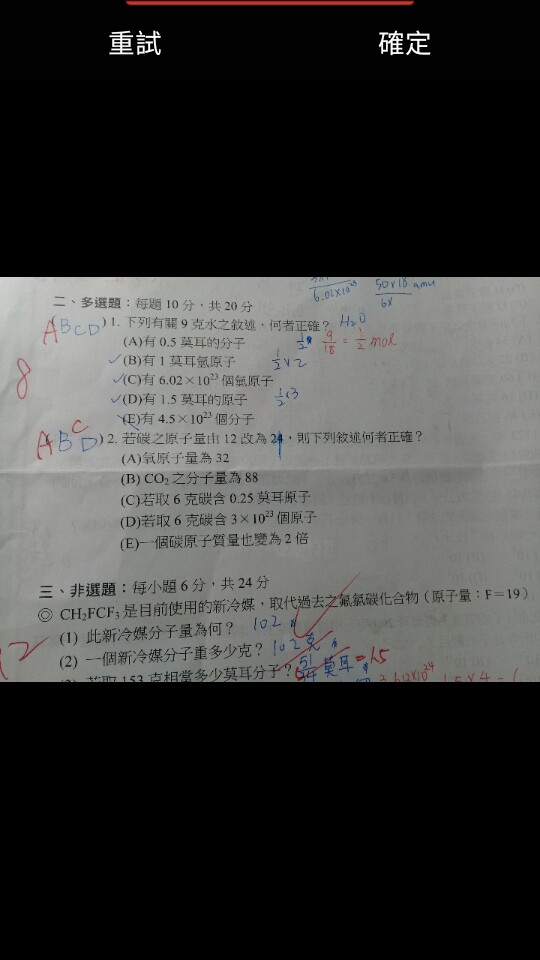 重試 確定
6.02×10²³ 50×18 amu
二、多選題：每題 10 分，共 20 分
ABCD) 1. 下列有關 9 克水之敘述，何者正確？ H₂O
(A)有 0.5 莫耳的分子 9/18 = 1/2 mol
✓(B)有 1 莫耳氫原子 1/2×2
✓(C)有 6.02×10²³ 個氫原子
✓(D)有 1.5 莫耳的原子 1/2×3
(E)有 4.5×10²³ 個分子
8
ABCD) 2. 若碳之原子量由 12 改為 24，則下列敘述何者正確？
(A)氧原子量為 32
(B) CO₂ 之分子量為 88
(C)若取 6 克碳含 0.25 莫耳原子
(D)若取 6 克碳含 3×10²³ 個原子
(E)一個碳原子質量也變為 2 倍
三、非選題：每小題 6 分，共 24 分
◎ CH₂FCF₃ 是目前使用的新冷媒，取代過去之氟氯碳化合物（原子量：F=19）
(1) 此新冷媒分子量為何？ 102
12
(2) 一個新冷媒分子重多少克？ 102克
若取 153 克相當多少莫耳分子？ 莫耳 = 1.5